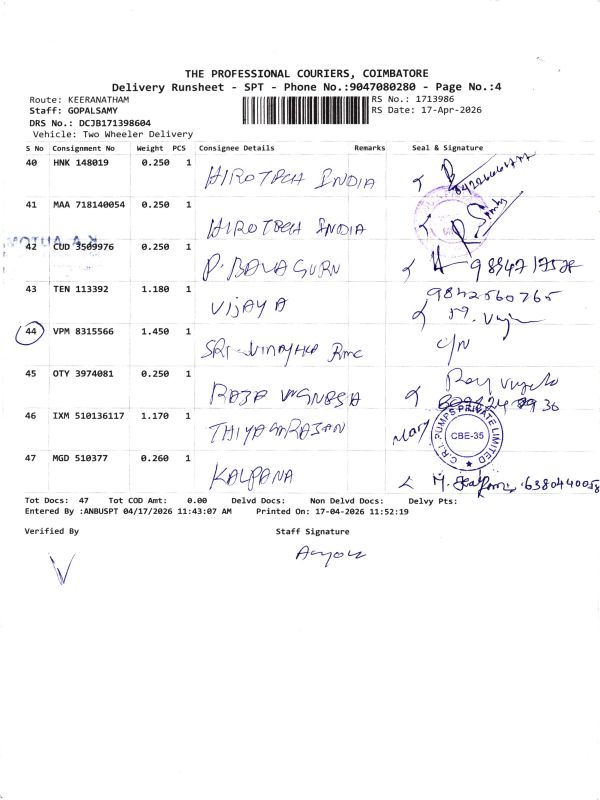 THE PROFESSIONAL COURIERS, COIMBATORE
Delivery Runsheet - SPT - Phone No.:9047080280 - Page No.:4
Route: KEERANATHAM
Staff: GOPALSAMY
DRS No.: DCJB171398604
Vehicle: Two Wheeler Delivery
RS No.: 1713986
RS Date: 17-Apr-2026
S No Consignment No Weight PCS Consignee Details Remarks Seal & Signature
40 HNK 148019 0.250 1 HIROTECH INDIA
41 MAA 718140054 0.250 1 HIROTECH INDIA
42 CUD 3509976 0.250 1 P. BALA GURU
43 TEN 113392 1.180 1 VIJAYA 9842560765
44 VPM 8315566 1.450 1 SRI VINAYAKA RMC C/N
45 OTY 3974081 0.250 1 RAJA VIGNESH
46 IXM 510136117 1.170 1 THIYAGARAJAN Mary
C.R.I. PUMPS PRIVATE LIMITED
CBE-35
47 MGD 510377 0.260 1 KALPANA 6380440058
Tot Docs: 47 Tot COD Amt: 0.00 Delvd Docs: Non Delvd Docs: Delvy Pts:
Entered By :ANBUSPT 04/17/2026 11:43:07 AM Printed On: 17-04-2026 11:52:19
Verified By Staff Signature